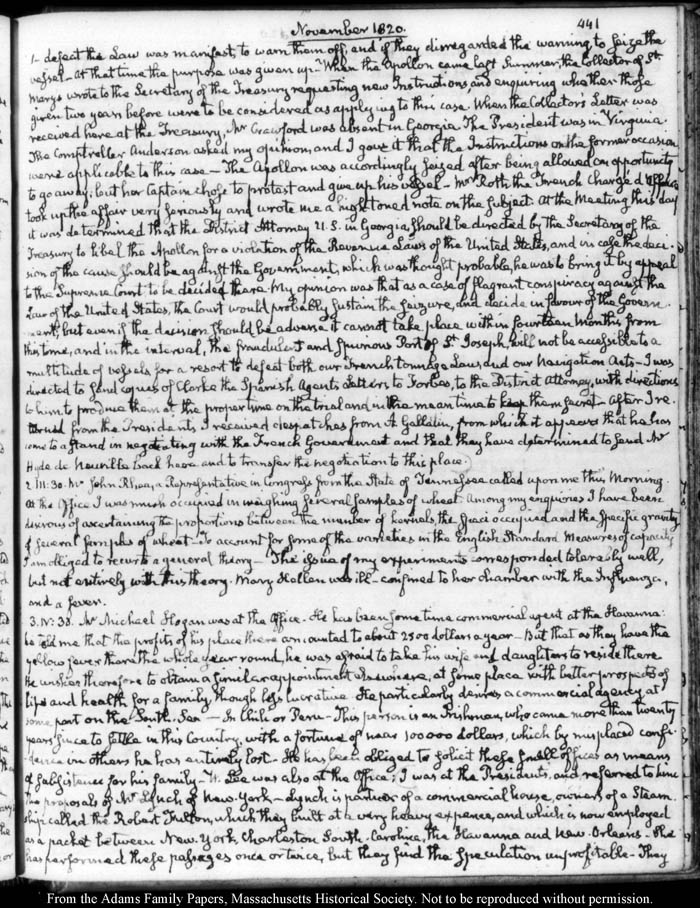 November 1820.
441
1- defeat the Law was manifest, to warn them off, and if they disregarded the warning to seize the
vessel. At that time the purpose was given up. When the Apollon came last Summer, the Collector of St.
Marys wrote to the Secretary of the Treasury requesting new Instructions and enquiring whether those
given two years before were to be considered as applying to this case. When the Collectors Letter was
received here at the Treasury, Mr Crawford was absent in Georgia. The President was in Virginia.
The Comptroller Anderson asked my opinion, and I gave it that the Instructions on the former occasion
were applicable to this case — The Apollon was accordingly seized after being allowed an opportunity
to go away; but her Captain chose to protest and give up his vessel — Mr Roth the French Chargé d'Affaires
took up the affair very seriously and wrote me a high toned note on the subject. At the Meeting this day
it was determined that the District Attorney U.S. in Georgia should be directed by the Secretary of the
Treasury to libel the Apollon for a violation of the Revenue Laws of the United States, and in case the deci-
sion of the cause should be against the Government, which was thought probable, he was to bring it by appeal
to the Supreme Court to be decided there. My opinion was that as a case of flagrant conspiracy against the
Law of the United States, the Court would probably sustain the seizure, and decide in favour of the Govern-
ment; but even if the decision should be adverse, it cannot take place within fourteen Months from
this time, and in the interval, the fraudulent and spurious Port of St Joseph, will not be accessible to a
multitude of vessels for a resort to defeat both our French tonnage Law, and our Navigation Acts — I was
directed to send copies of Clarke the Spanish Agents Letters to Forbes, to the District Attorney, with directions
to him to produce them at the proper time on the trial and in the mean time to keep them secret — After I re-
turned from the Presidents, I received despatches from A. Gallatin, from which it appears that he has
come to a stand in negotiating with the French Government and that they have determined to send Mr
Hyde de Neuville back here and to transfer the negotiation to this place.
2. III:30. Mr John Rhea, a Representative in Congress from the State of Tennessee called upon me this Morning.
At the Office I was much occupied in weighing several samples of wheat. Among my enquiries I have been
desirous of ascertaining the proportions between the number of kernels, the space occupied and the specific gravity
of several samples of wheat — To account for some of the varieties in the English Standard Measures of capacity
I am obliged to recur to a general theory — The issue of my experiments corresponded tolerably well,
but not entirely with this theory. Mary Hellen was ill — confined to her chamber with the Influenza,
and a fever.
3. IV:30. Mr Michael Hogan was at the Office. He has been some time commercial agent at the Havanna:
he told me that the profits of his place there amounted to about 2500 dollars a year — But that as they have the
yellow fever there the whole year round, he was afraid to take his wife and daughters to reside there.
He wishes therefore to obtain a similar appointment elsewhere, at some place with better prospects of
life and health for a family though less lucrative. He particularly desires a commercial agency at
some port on the South Sea — In Chile or Peru — This person is an Irishman, who came more than twenty
years since to settle in this Country, with a fortune of near 300000 dollars, which by misplaced confi-
dence in others he has entirely lost — He has been obliged to solicit these small offices as means
of subsistence for his family. W. Lee was also at the Office; I was at the Presidents, and referred to him
the proposals of Mr Lynch of New-York — Lynch is partner of a commercial house, owners of a Steam-
ship called the Robert Fulton, which they built at a very heavy expence, and which is now employed
as a packet between New-York, Charleston South-Carolina, the Havanna and New-Orleans — She
has performed these passages once or twice, but they find the speculation unprofitable — They
From the Adams Family Papers, Massachusetts Historical Society. Not to be reproduced without permission.